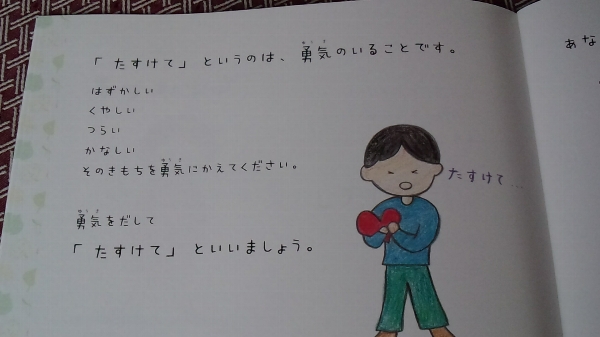 「たすけて」というのは、勇気のいることです。
はずかしい
くやしい
つらい
かなしい
そのきもちを勇気にかえてください。
勇気をだして
「たすけて」といいましょう。
たすけて...
あな